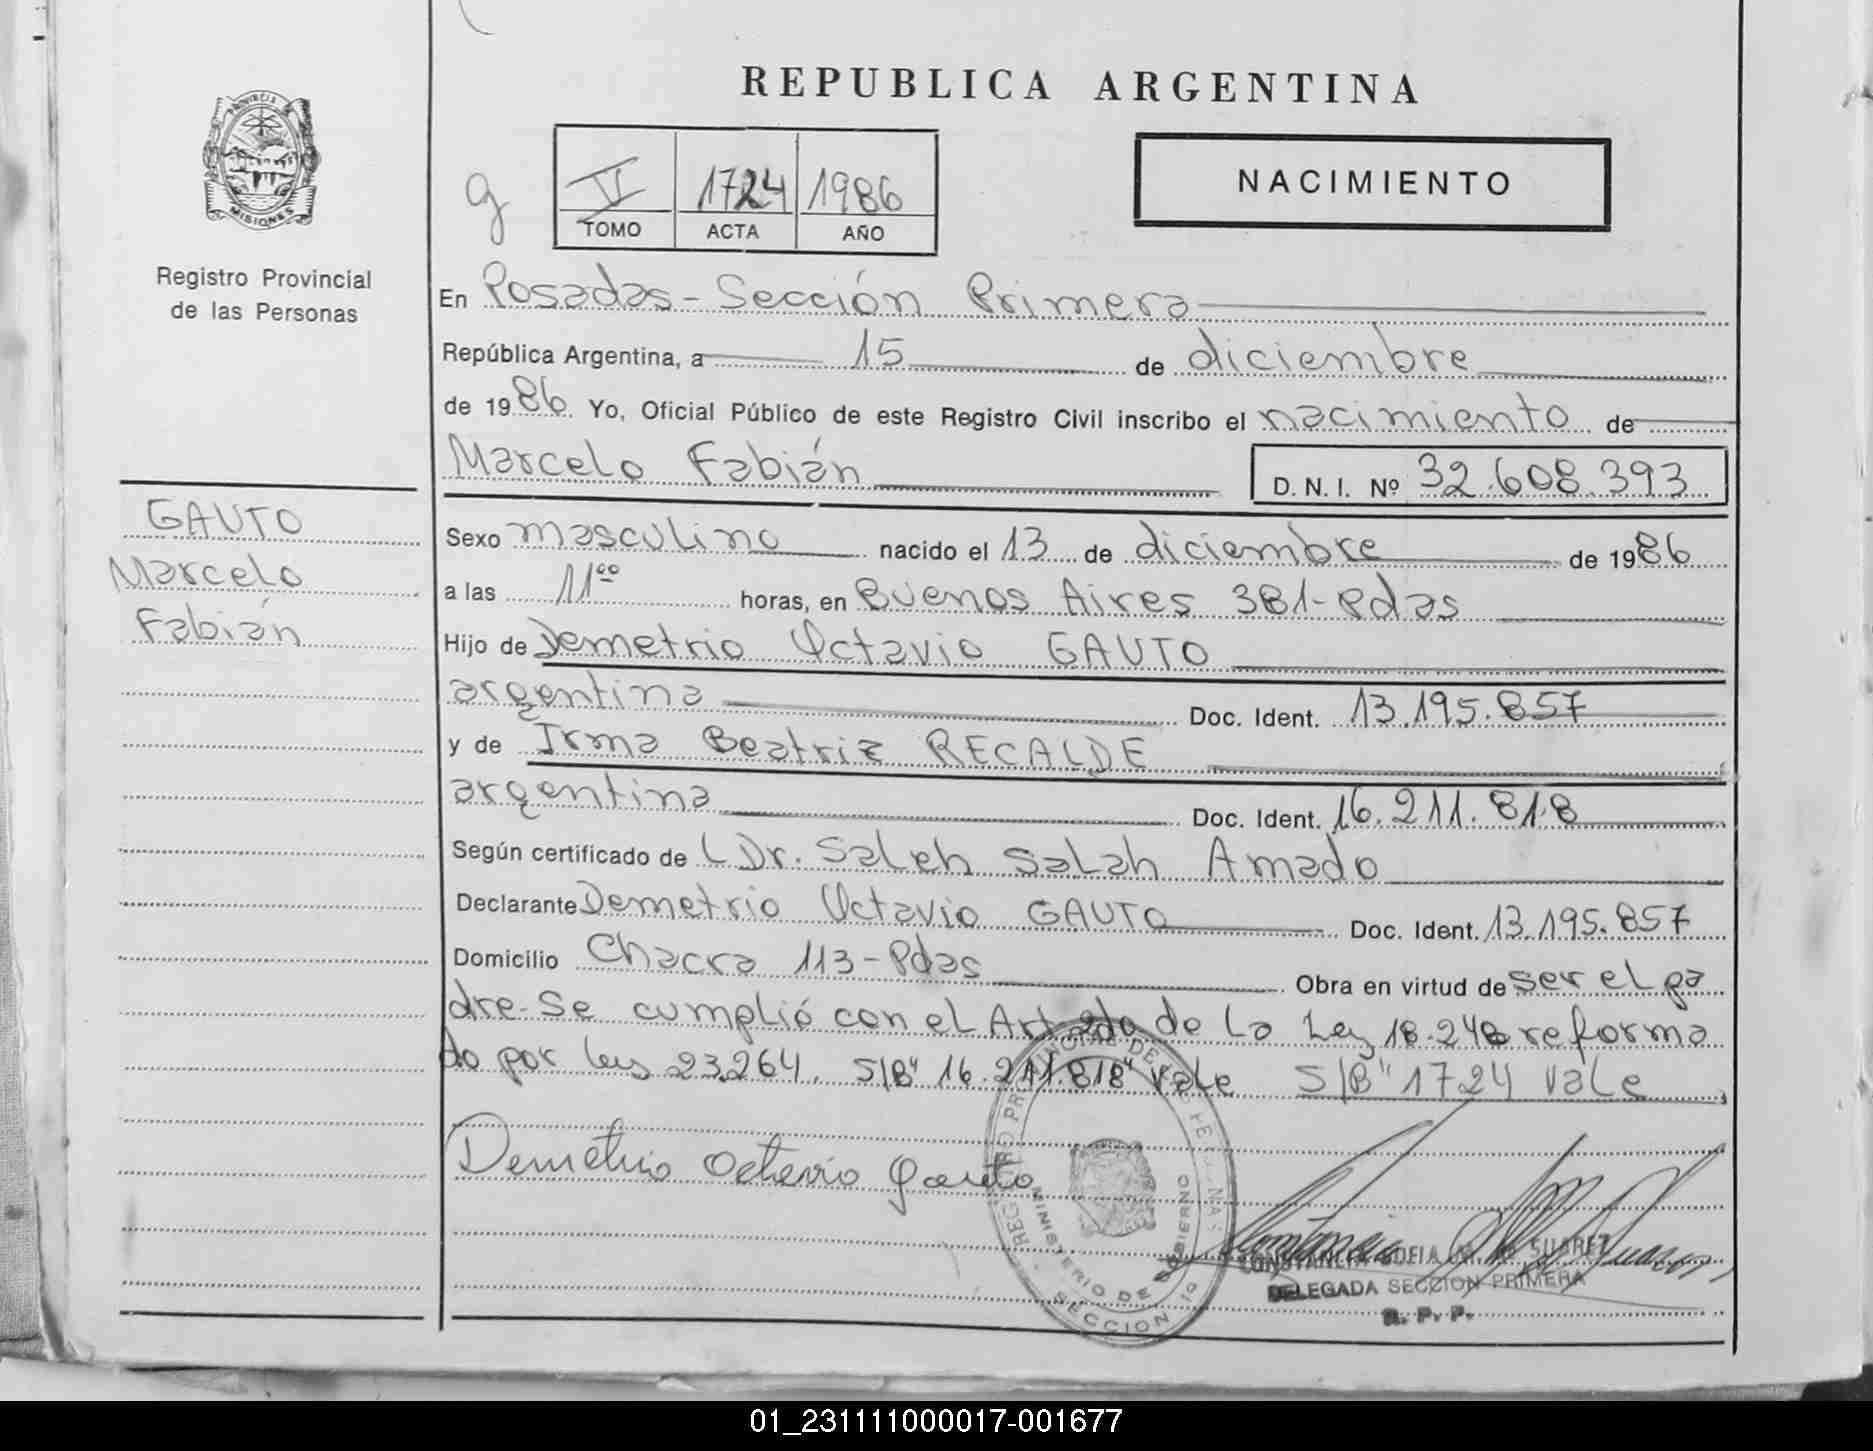 REPUBLICA ARGENTINA
PROVINCIA DE MISIONES
Registro Provincial
de las Personas
g
VI 1724 1986
TOMO ACTA AÑO
NACIMIENTO
En Posadas - Sección Primera
República Argentina, a 15 de diciembre
de 1986 Yo, Oficial Público de este Registro Civil inscribo el nacimiento de
Marcelo Fabián D. N. I. Nº 32.608.393
GAUTO
Marcelo
Fabián
Sexo masculino nacido el 13 de diciembre de 1986
a las 11°° horas, en Buenos Aires 381-Pdas
Hijo de Demetrio Octavio GAUTO
argentina Doc. Ident. 13.195.857
y de Irma Beatriz RECALDE
argentina Doc. Ident. 16.211.818
Según certificado de Dr. Saleh Salah Amado
Declarante Demetrio Octavio GAUTO Doc. Ident. 13.195.857
Domicilio Chacra 113-Pdas Obra en virtud de ser el pa
dre-Se cumplió con el Art 2do de la Ley 18.248 reforma
do por ley 23.264. S/B" 16.211.818" Vale S/B" 1724 Vale
Demetrio Octavio Gauto
REGISTRO PROVINCIAL DE LAS PERSONAS
MINISTERIO DE GOBIERNO
SECCION 1º
CONSTANCIA SOFIA M. DE SUAREZ
DELEGADA SECCION PRIMERA
R. P. P.
01_231111000017-001677